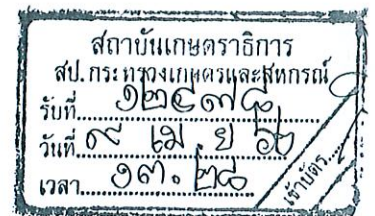 สถาบันเกษตราธิการ
สป.กระทรวงเกษตรและสหกรณ์
รับที่
วันที่ ๙ เม ย ๖๒
เวลา ๑๓.๒๘
เข้าบัตร